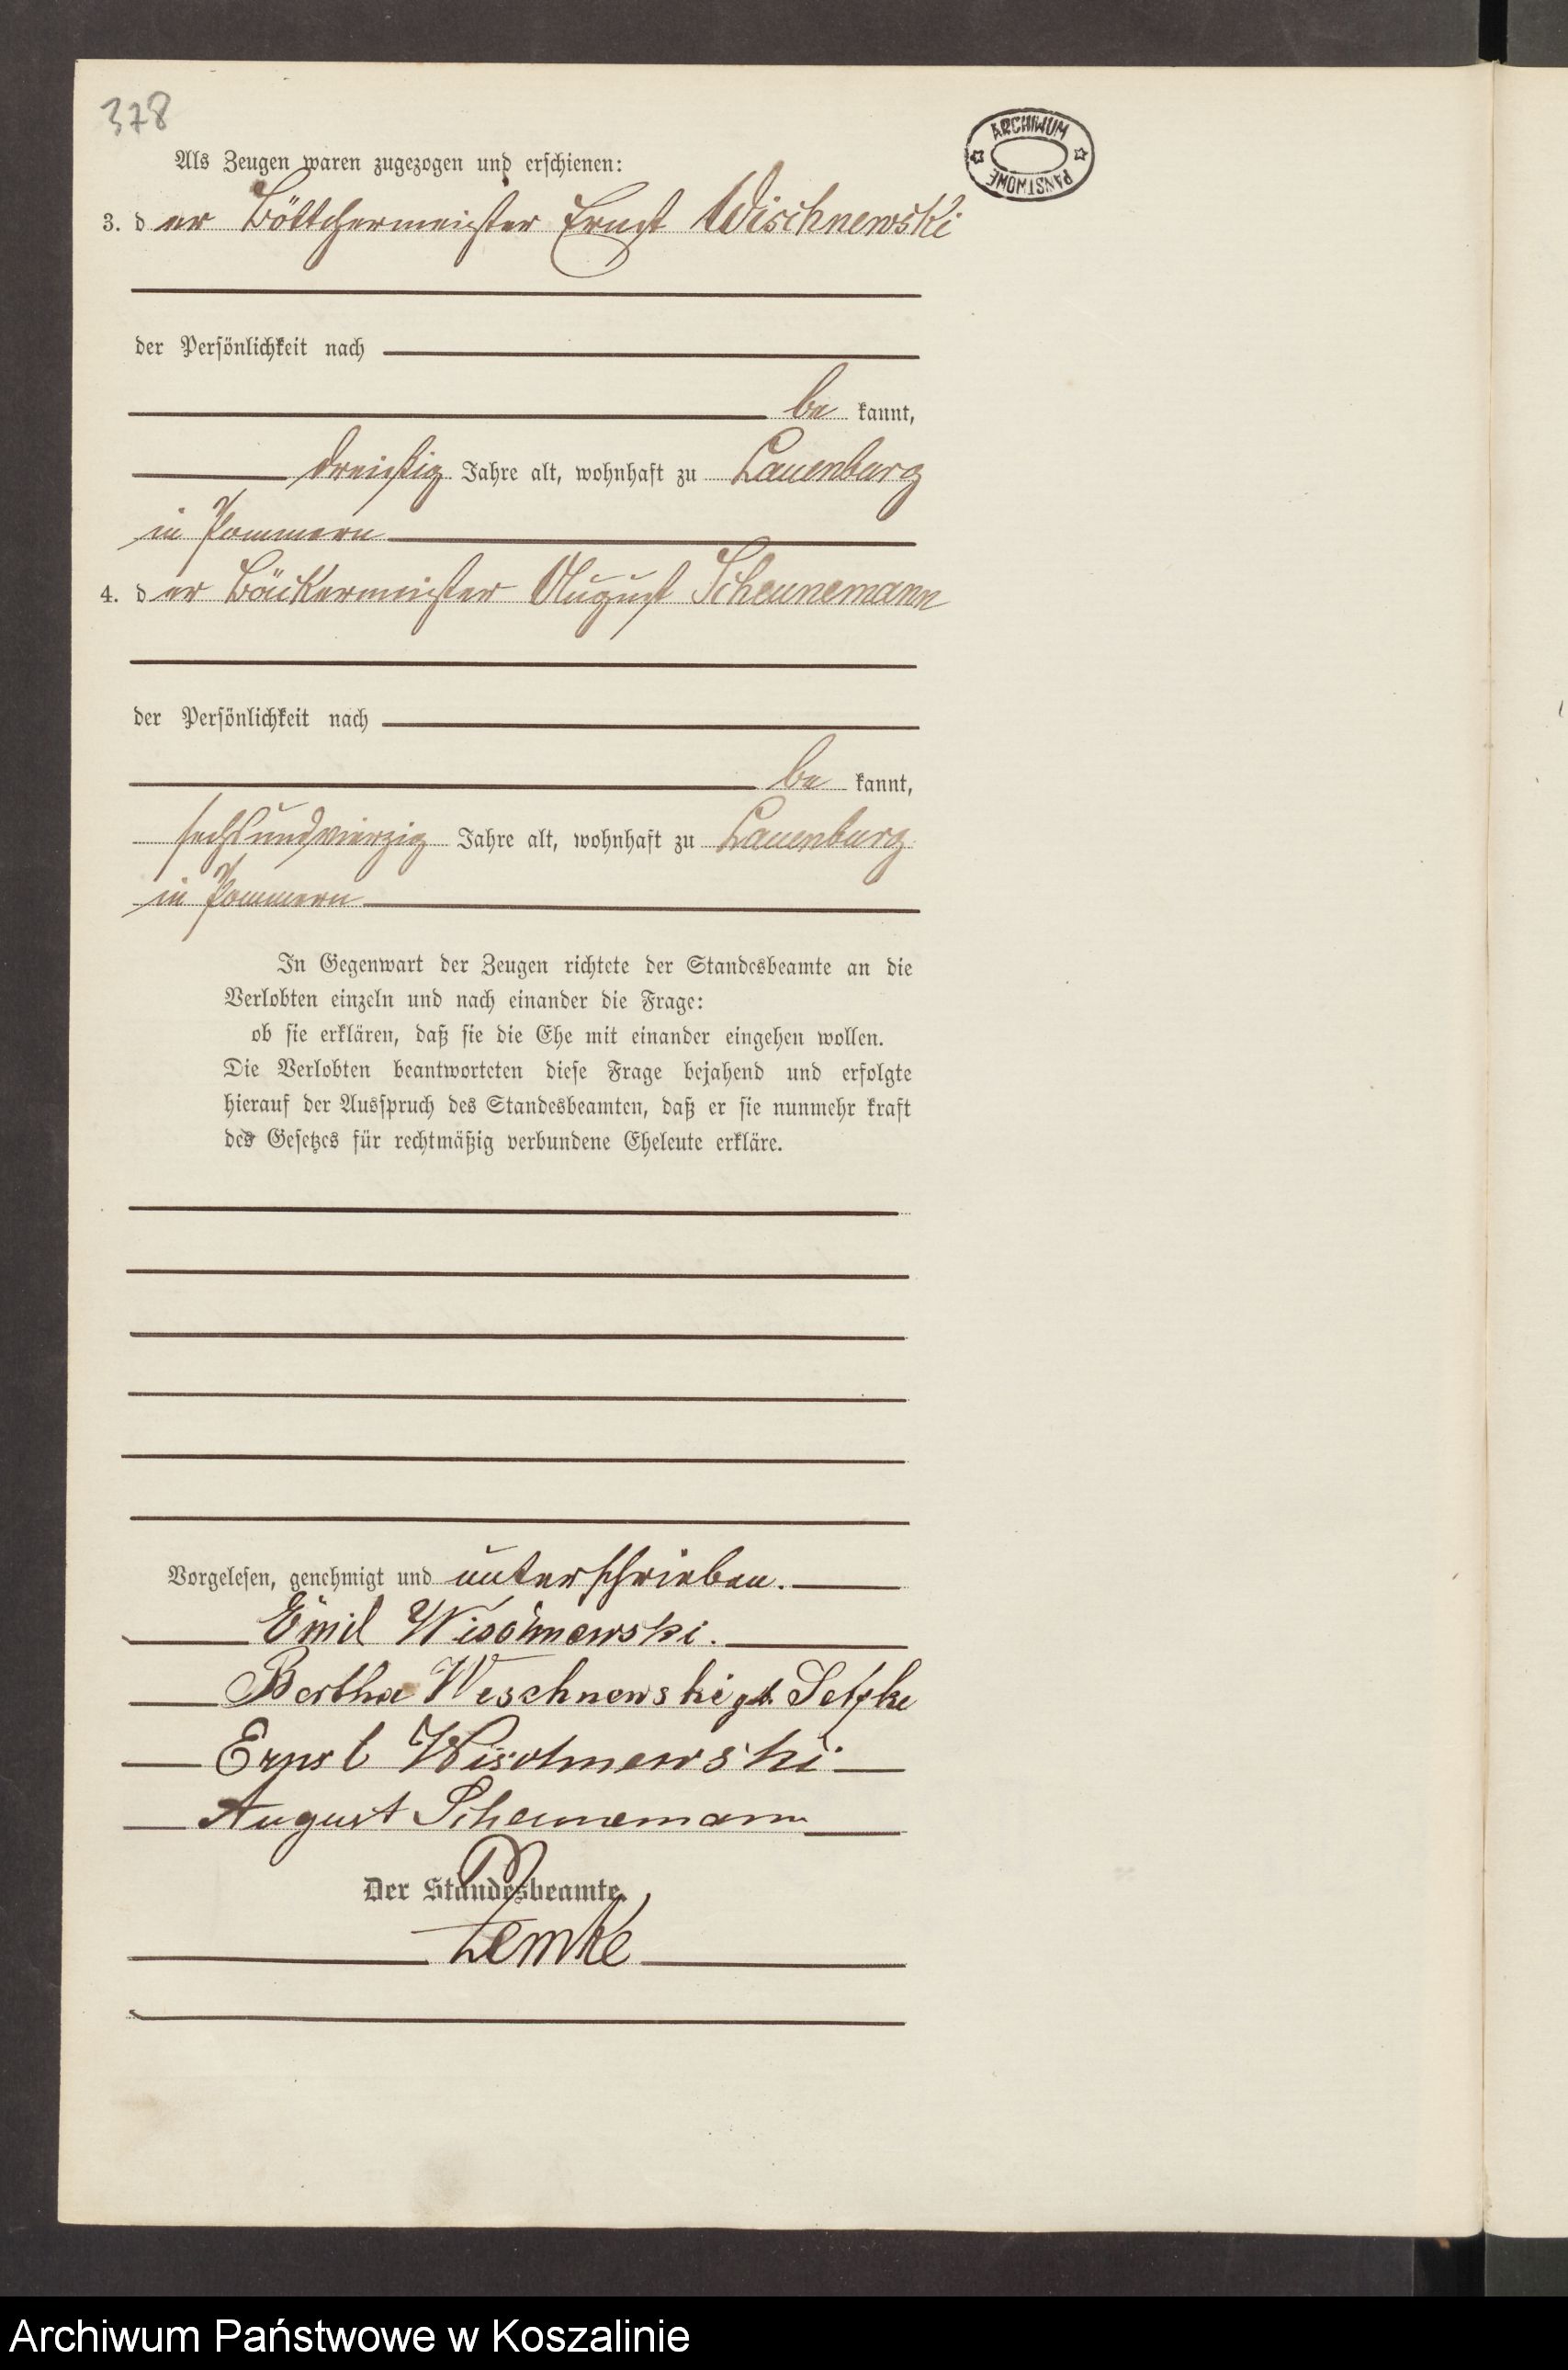 378
ARCHIWUM
PAŃSTWOWE
Als Zeugen waren zugezogen und erschienen:
3. der Böttchermeister Ernst Wischnewski
der Persönlichkeit nach
be kannt,
dreißig Jahre alt, wohnhaft zu Lauenburg
in Pommern
4. der Bäckermeister August Scheunemann
der Persönlichkeit nach
be kannt,
sechsundvierzig Jahre alt, wohnhaft zu Lauenburg
in Pommern
In Gegenwart der Zeugen richtete der Standesbeamte an die
Verlobten einzeln und nach einander die Frage:
ob sie erklären, daß sie die Ehe mit einander eingehen wollen.
Die Verlobten beantworteten diese Frage bejahend und erfolgte
hierauf der Ausspruch des Standesbeamten, daß er sie nunmehr kraft
des Gesetzes für rechtmäßig verbundene Eheleute erkläre.
Vorgelesen, genehmigt und unterschrieben.
Emil Wischnewski.
Bertha Wischnewski gb.
Ernst Wischnewski
August Scheunemann
Der Standesbeamte.
Lemke
Archiwum Państwowe w Koszalinie